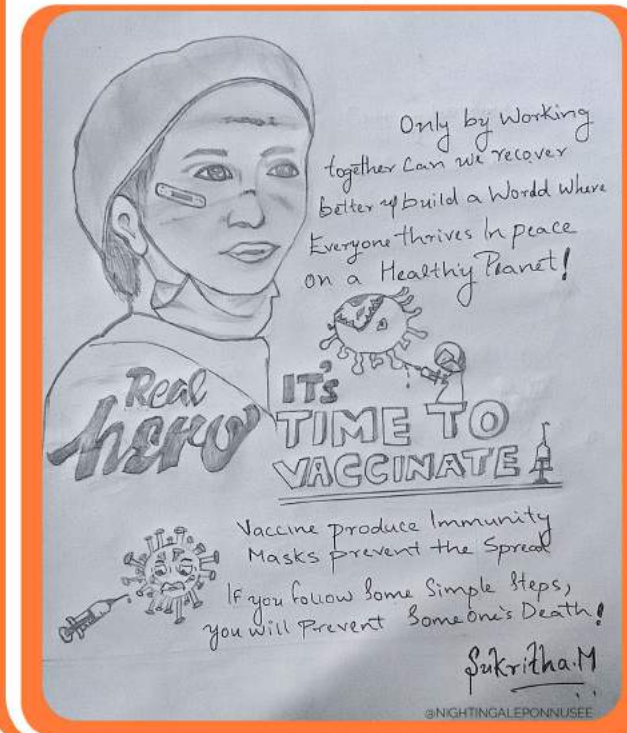 Only by Working
together Can we recover
better & build a World where
Everyone thrives In peace
on a Healthiy Planet!
Real
hero
IT's
TIME TO
VACCINATE
Vaccine produce Immunity
Masks prevent the Spread
If you follow Some Simple Steps,
you will Prevent Someone's Death!
Sukritha.M
@NIGHTINGALEPONNUSEE